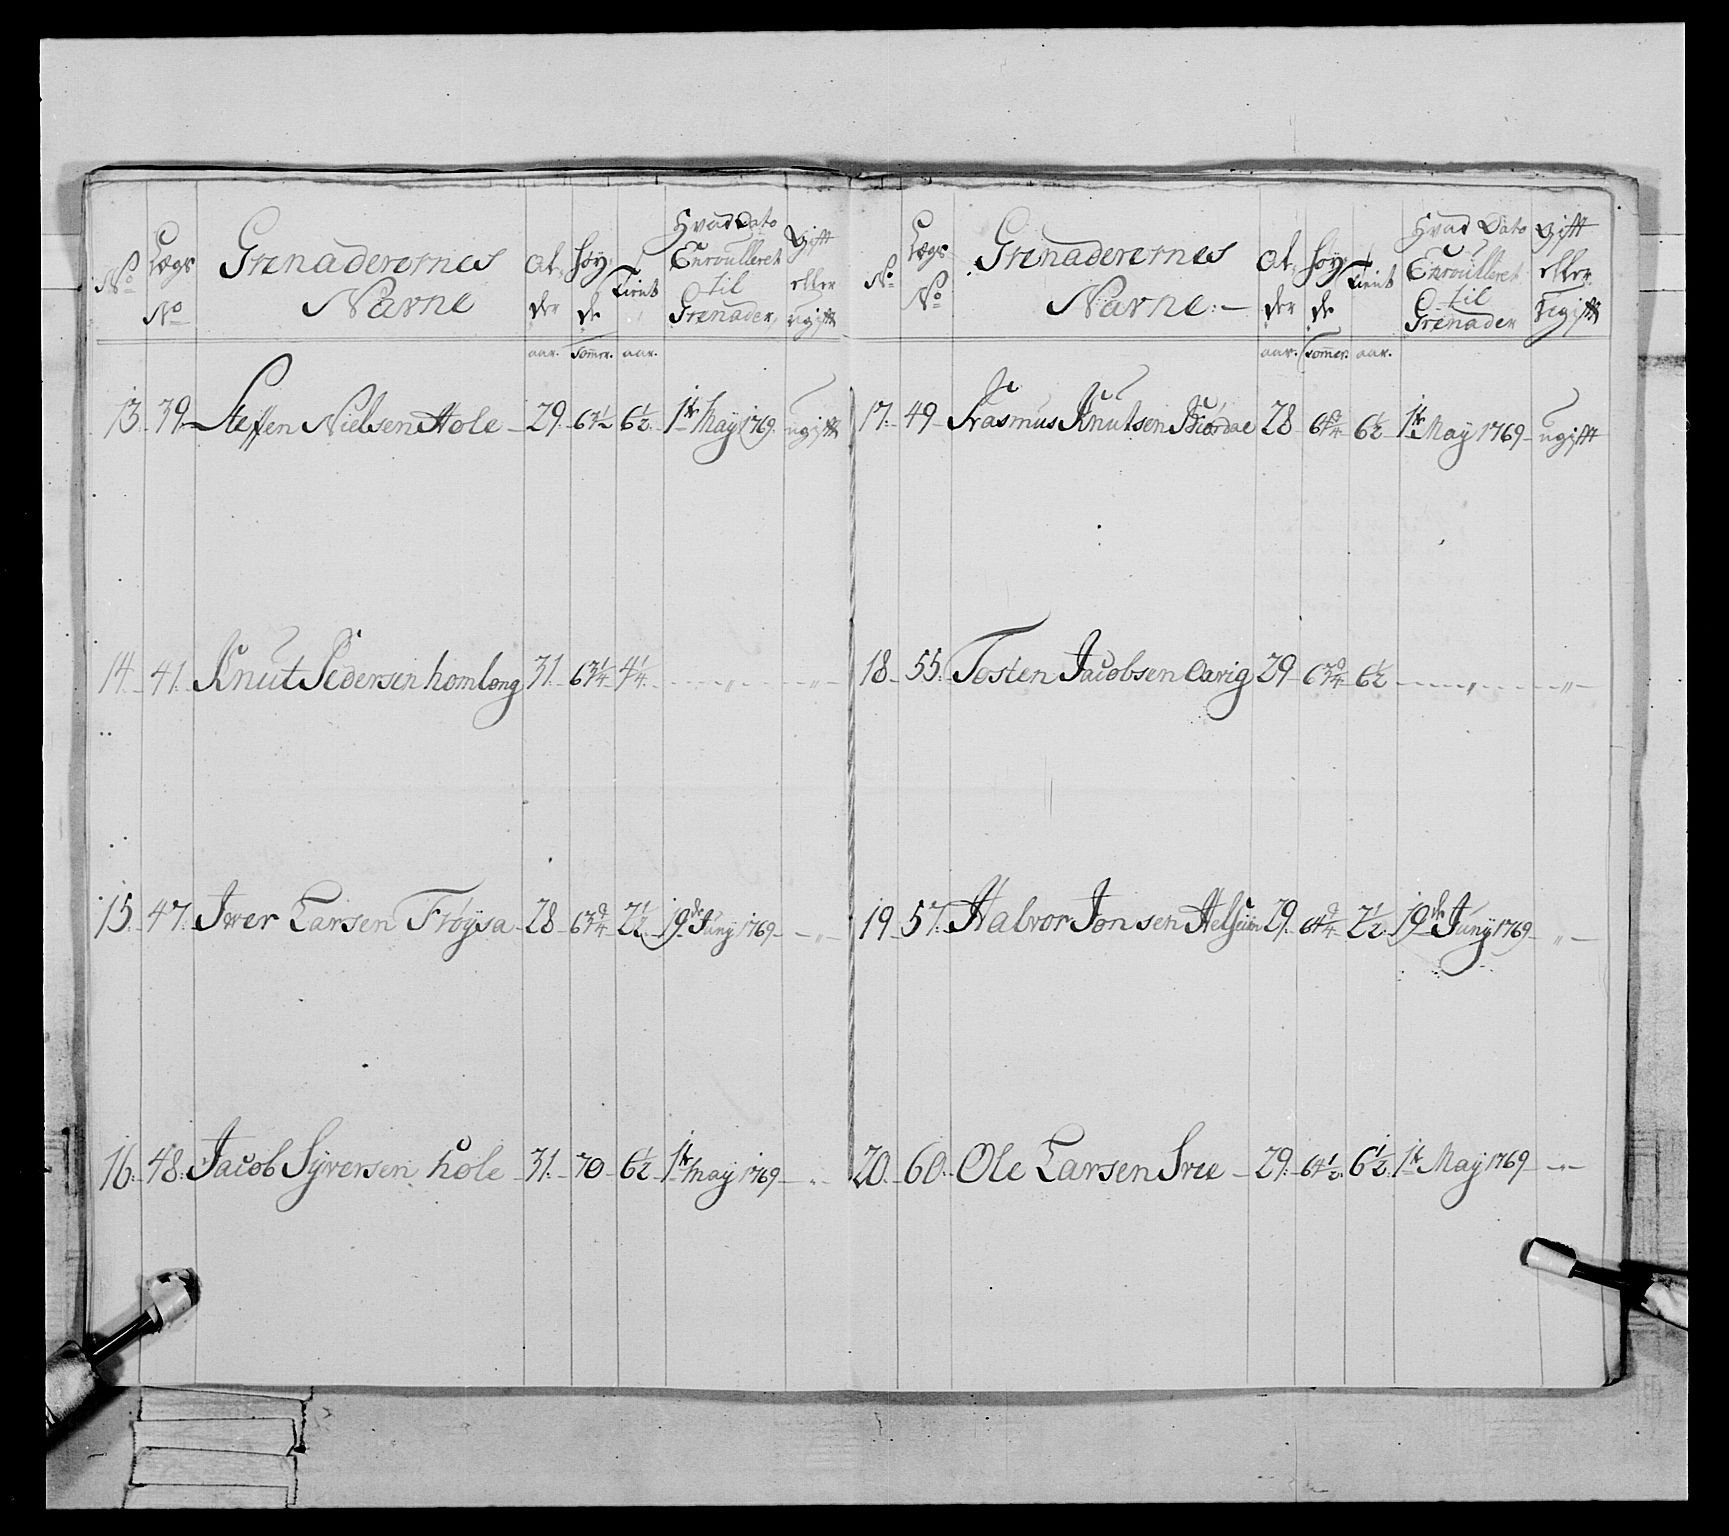 No Lægs No Grenaderernes Navne Al„der Høy„de Tient Hvad Dato Enroulleret til Grenader, Gift eller ugift
aar. Tomer. aar.
13. 39. Steffen Nielsen Hole 29. 63½ 6½ 1te May 1769. ugift
14. 41. Knut Pedersen homlong 31. 63¼ 4¼ „ „
15. 47. Iwer Larsen Frøysa 28 63¾ 2½ 19de Juny 1769 „
16. 48. Jacob Syversen hole 31. 70 6½ 1te May 1769 „
No Lægs No Grenaderernes Navne Al„der Høy„de Tient Hvad Dato Enroulleret til Grenader Gift eller Ugift
aar. Tomer. aar.
17. 49 Rasmus Knutsen 28 64¾ 6½ 1te May 1769 ugift
18. 55. Tosten Jacobsen 29 63¾ 6½ „ „
19. 57. Halvor Jonsen 29. 64¾ 2½ 19de Juny 1769 „
20. 60. Ole Larsen Sree 29. 64½ 6½ 1te May 1769 „